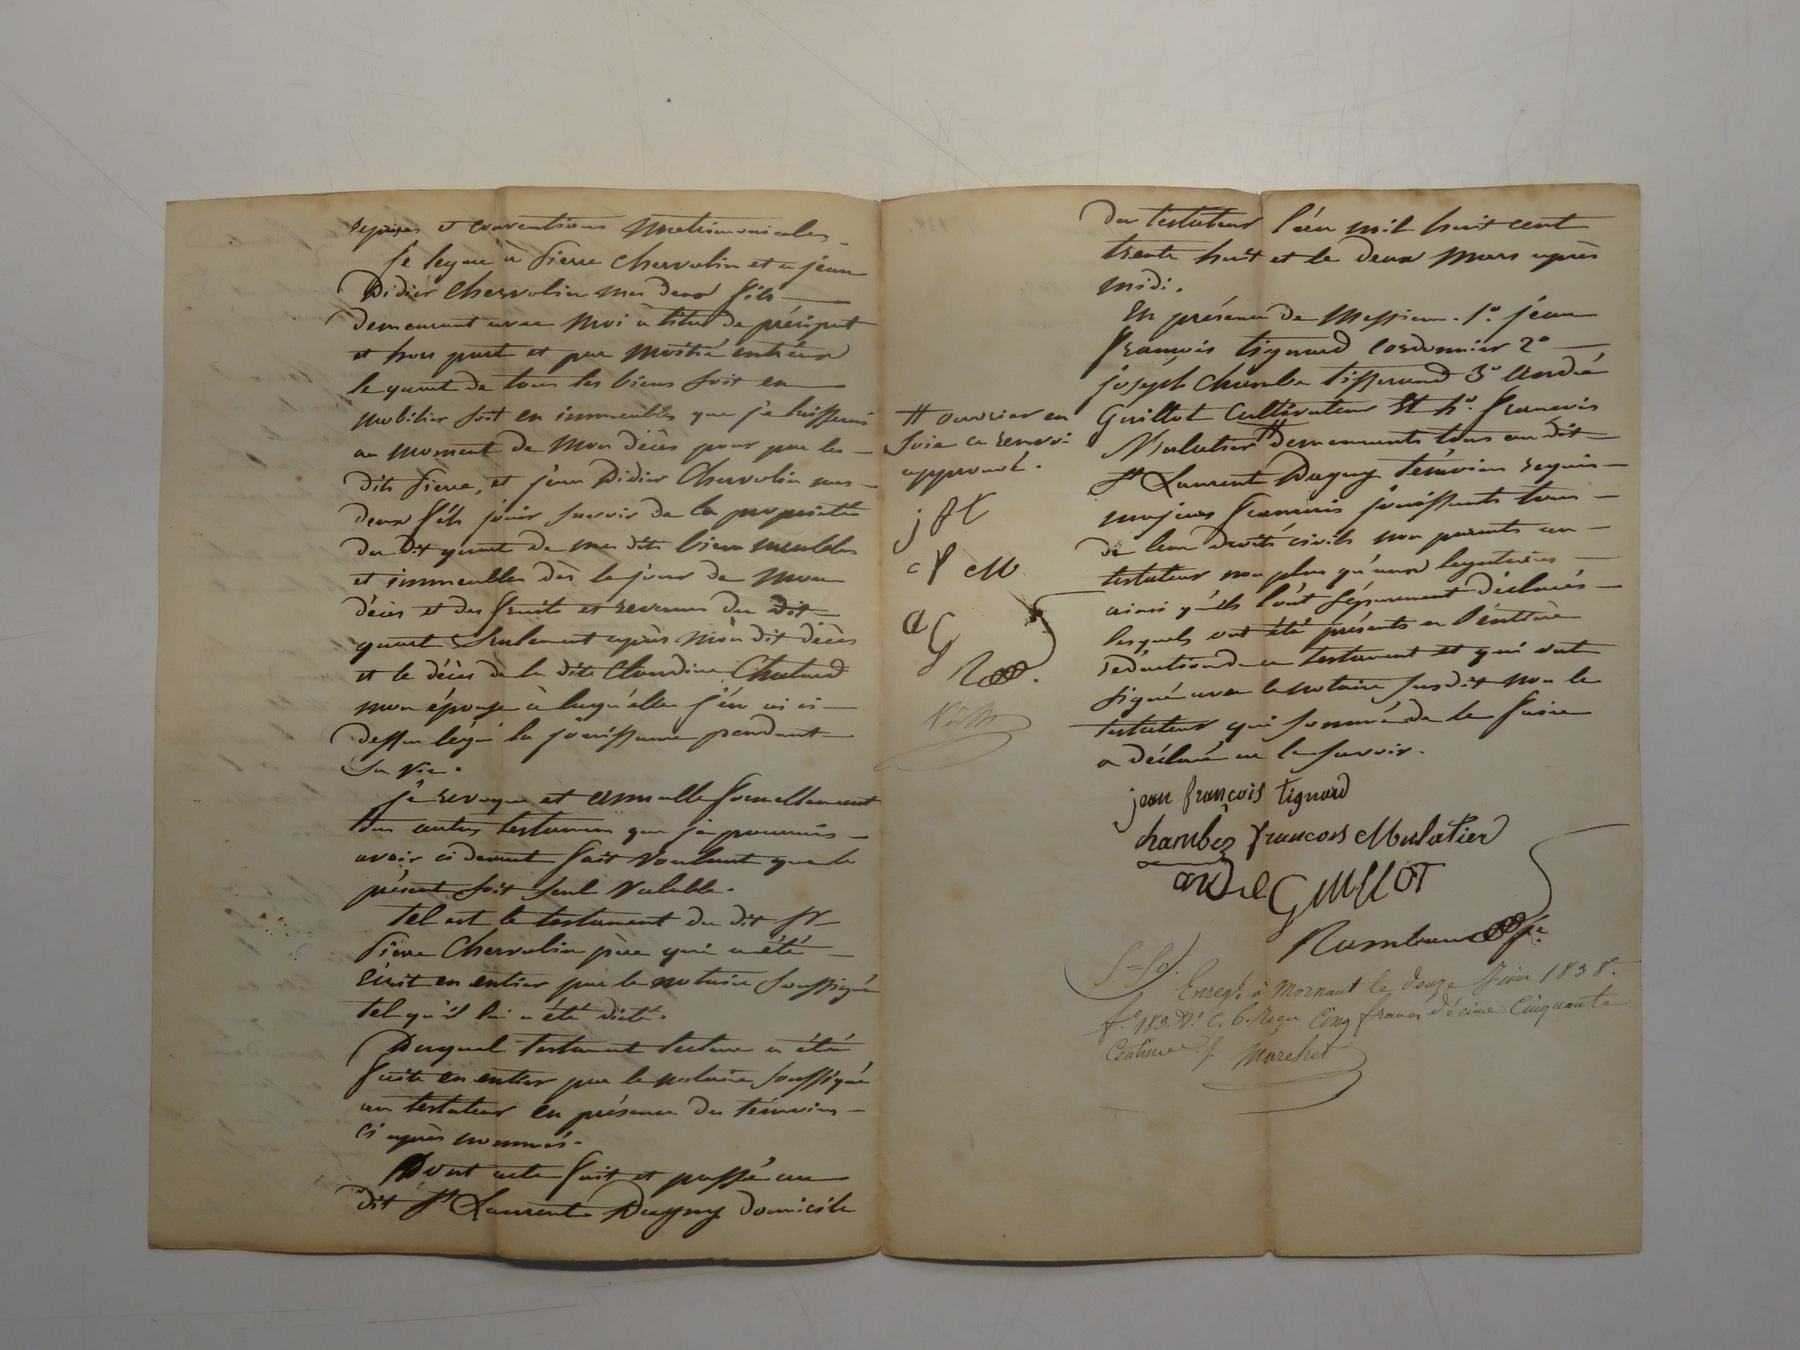 reprises et conventions matrimoniales.
Je legue à Pierre Chervolin et a jean
Didier Chervolin mes deux fils
demeurant avec moi à titre de préciput
et hors part et par moitié entr'eux
le quart de tous les biens soit en
mobilier soit en immeubles que je laisserai
au moment de mon décès pour par les
dits Pierre, et jean Didier Chervolin mes
deux fils jouir savoir de la propriété
du dit quart de mes dits biens meubles
et immeubles dès le jour de mon
décès et des fruits et revenus du dit
quart seulement après mon dit décès
et le décès de la dite Claudine Chatard
mon épouse à laquelle j'en ai ci
dessus légué la jouissance pendant
sa vie.
Je revoque et annulle formellement
tous autres testamens que je pourrais
avoir ci devant fait voulant que le
présent soit seul valable.
Tel est le testament du dit Sr
Pierre Chervolin père qui a été
écrit en entier par le notaire soussigné
tel qu'il lui a été dicté.
Duquel testament lecture a été
faite en entier par le notaire soussigné
au testateur en présence des témoins
ci après nommés.
Dont acte fait et passé au
dit St Laurent Dagny domicile
du testateur l'an mil huit cent
trente huit et le deux Mars après
midi.
En présence de Messieurs 1º. jean
françois tignard cordonnier 2º
joseph Chambe tisserand 3º André
Guillot Cultivateur Et 4º. francois
Mulatier # demeurants tous au dit
St Laurent Dagny témoins requis
majeurs francais jouissants tous
de leur droits civils non parents au
testateur non plus qu'aux legataires
ainsi qu'ils l'ont séparement déclarés
lesquels ont été présents a l'entière
rédaction de ce testament et qui ont
signé avec le notaire susdit non le
testateur qui sommé de le faire
a déclaré ne le savoir.
# ouvrier en
soie ce renvoi
approuvé.
j f t
cf M
a G
jean françois tignard
chambe francois Mulatier
andre GUILLOT
S=Sd.
Enregé à Mornant le douze Juin 1838.
fº. 183. Vº. C. 6. Reçu Cinq francs décime Cinquante
Centimes ./. Marchet